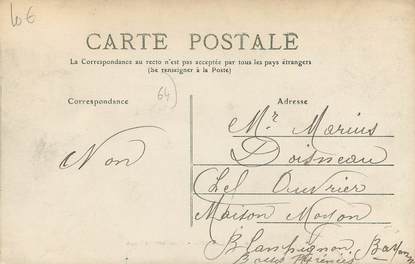 10 €
CARTE POSTALE
La Correspondance au recto n'est pas acceptée par tous les pays étrangers
(Se renseigner à la Poste)
Correspondance
64)
Adresse
Mr Marius
Doisneau
Non
Chef Ouvrier
Maison
Blanpignon
Basses Pyrénées